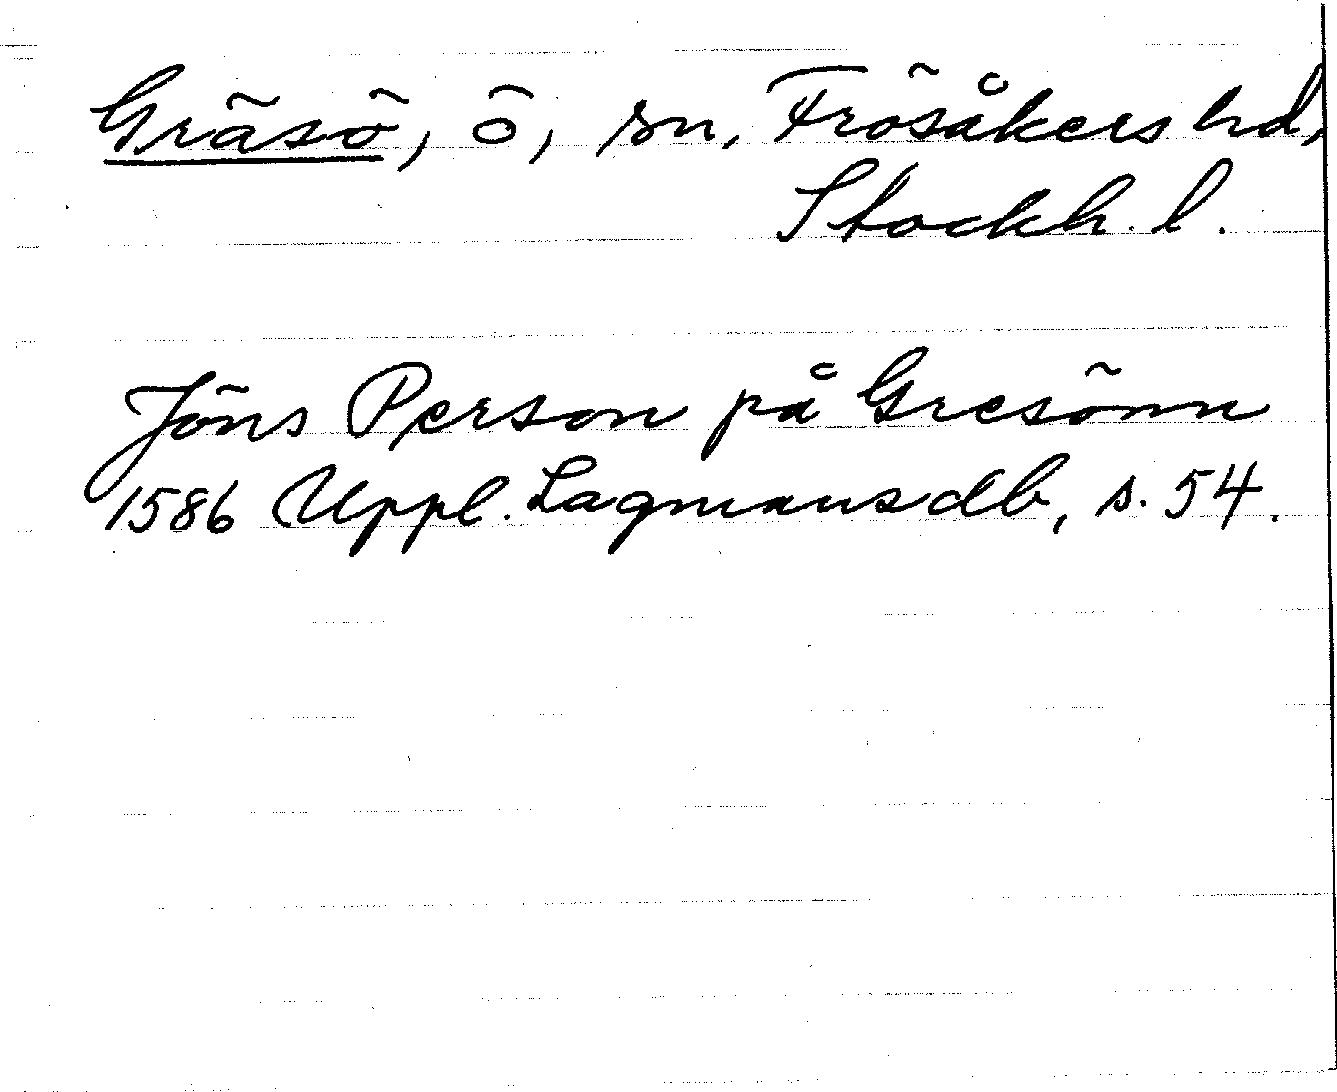 Gräsö, ö, sn, Frösåkers hd,
Stockh. l.
Jöns Person på Gresönn
1586 Uppl. Lagmansdb, s. 54.